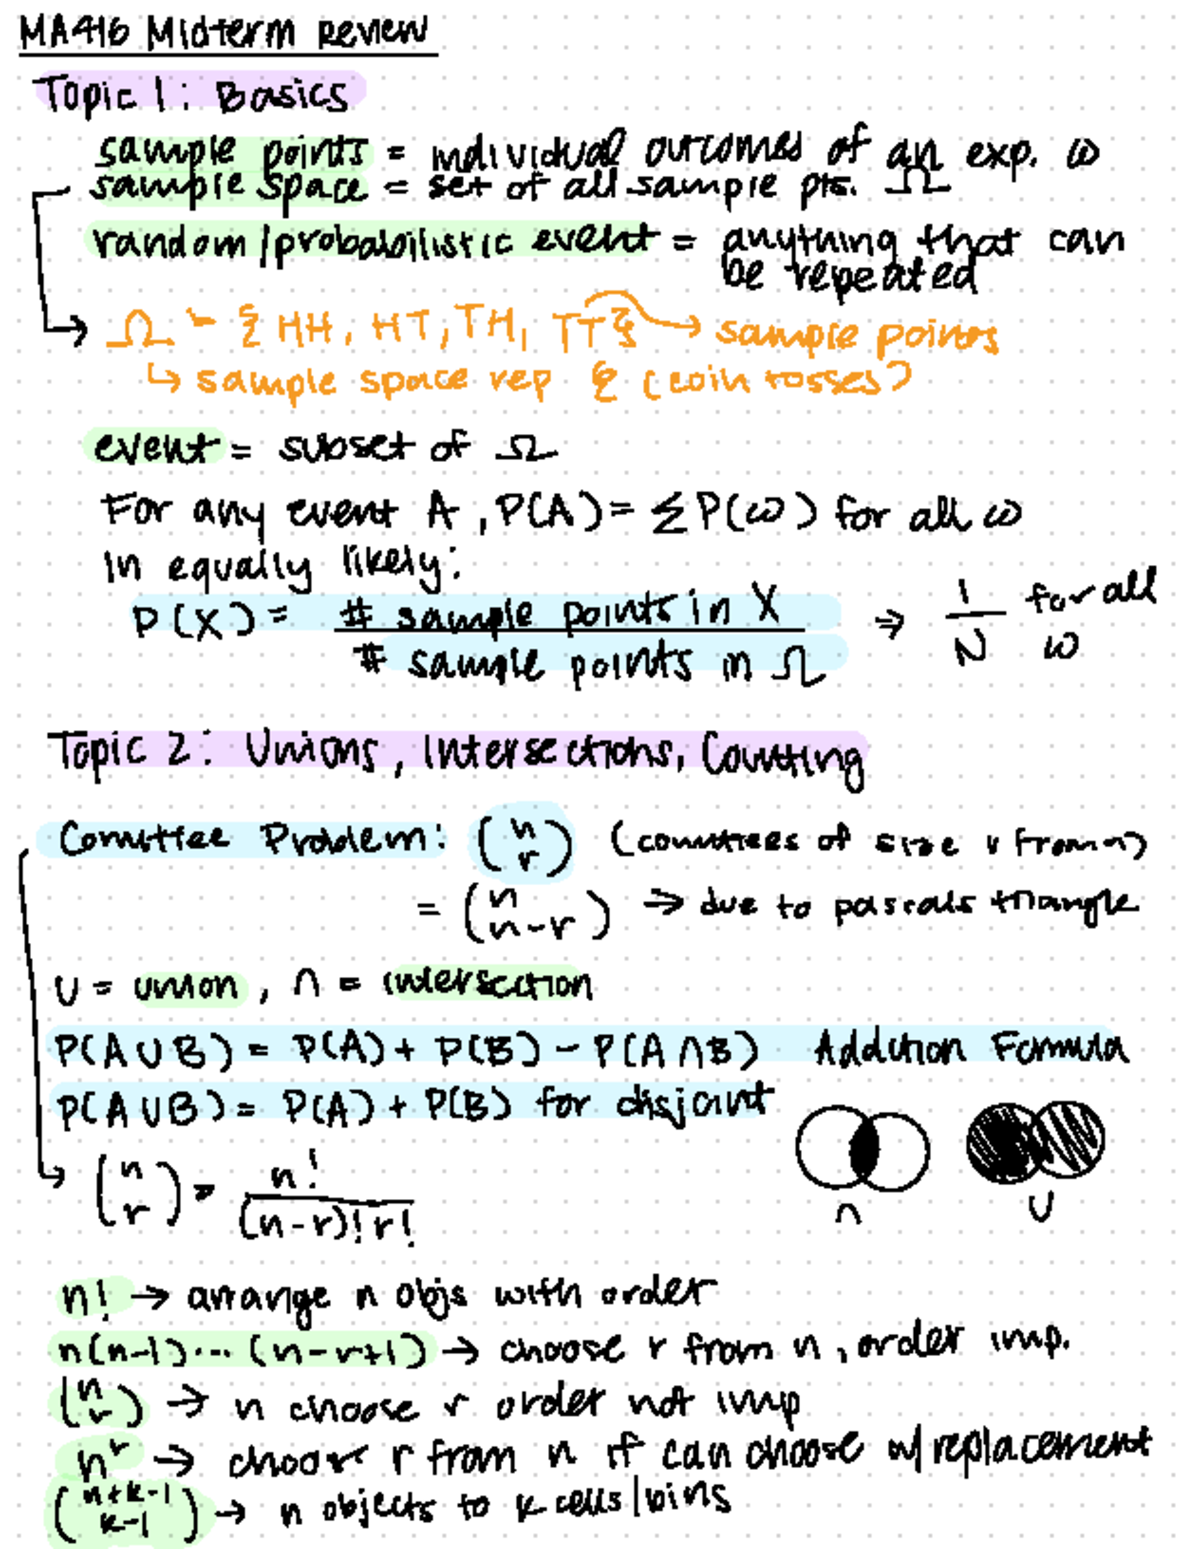 MA416 Midterm Review
Topic 1: Basics
sample points = individual outcomes of an exp. ω
sample space = set of all sample pts. Ω
random/probabilistic event = anything that can
be repeated
Ω = {HH, HT, TH, TT} → sample points
↳ sample space rep (coin tosses)
event = subset of Ω
For any event A, P(A) = ΣP(ω) for all ω
In equally likely:
P(X) = # sample points in X / # sample points in Ω ⇒ 1/N for all ω
Topic 2: Unions, Intersections, Counting
Comittee Problem: (n r) (committees of size r from n)
= (n n-r) ⇒ due to pascals triangle
∪ = union, ∩ = intersection
P(A∪B) = P(A) + P(B) - P(A∩B) Addition Formula
P(A∪B) = P(A) + P(B) for disjoint
(n r) = n! / (n-r)! r!
∩ ∪
n! → arrange n objs with order
n(n-1)... (n-r+1) → choose r from n, order imp.
(n r) → n choose r order not imp
n^r → choose r from n if can choose w/ replacement
(n+k-1 k-1) → n objects to k cells/bins